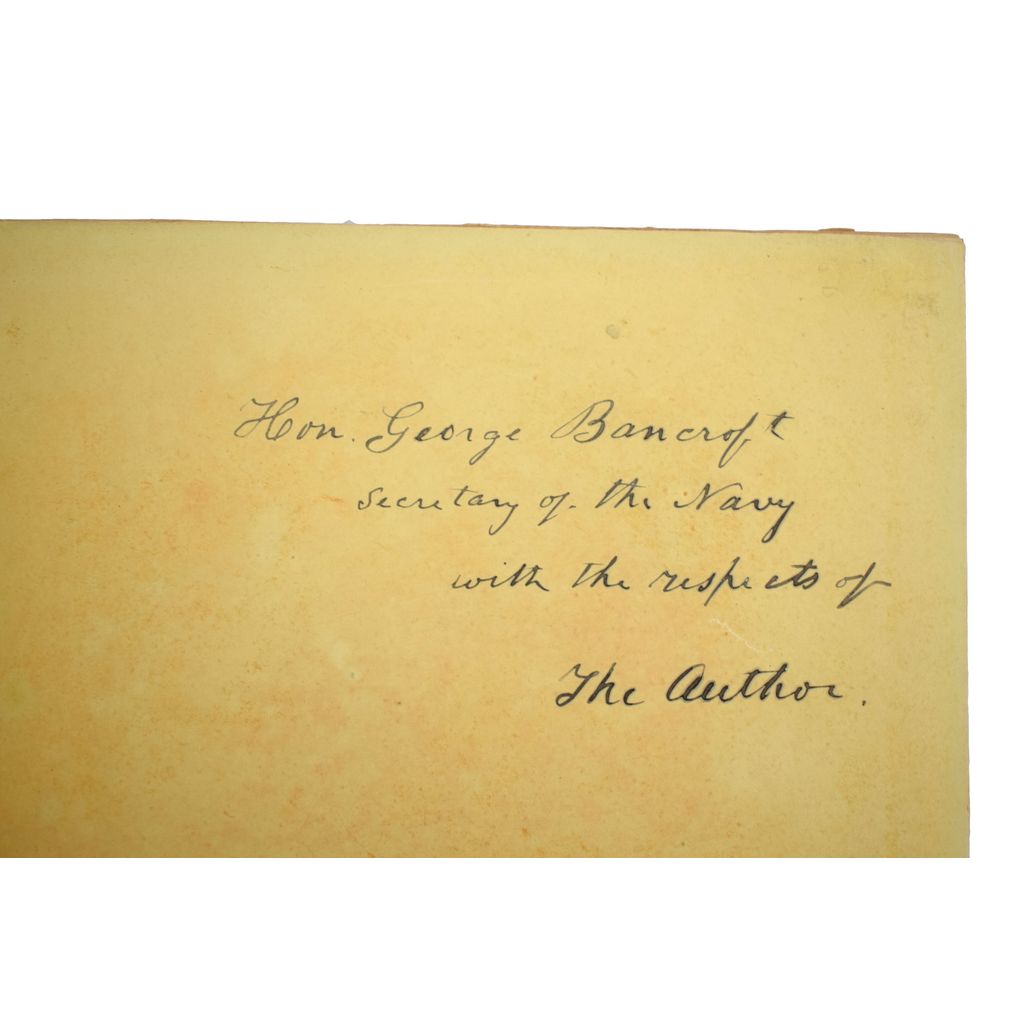 Hon. George Bancroft
Secretary of the Navy
with the respects of
The Author.